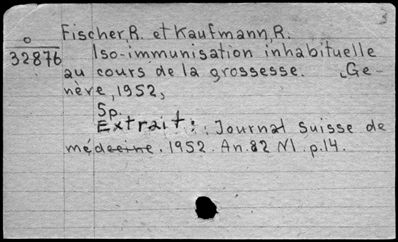 Fischer, R. et Kaufmann, R.
O
32876
Iso-immunisation inhabituelle
au cours de la grossesse. Ge-
nève, 1952,
5p.
Extrait: Journal suisse de
médecine. 1952. An. 82 N1. p.14.